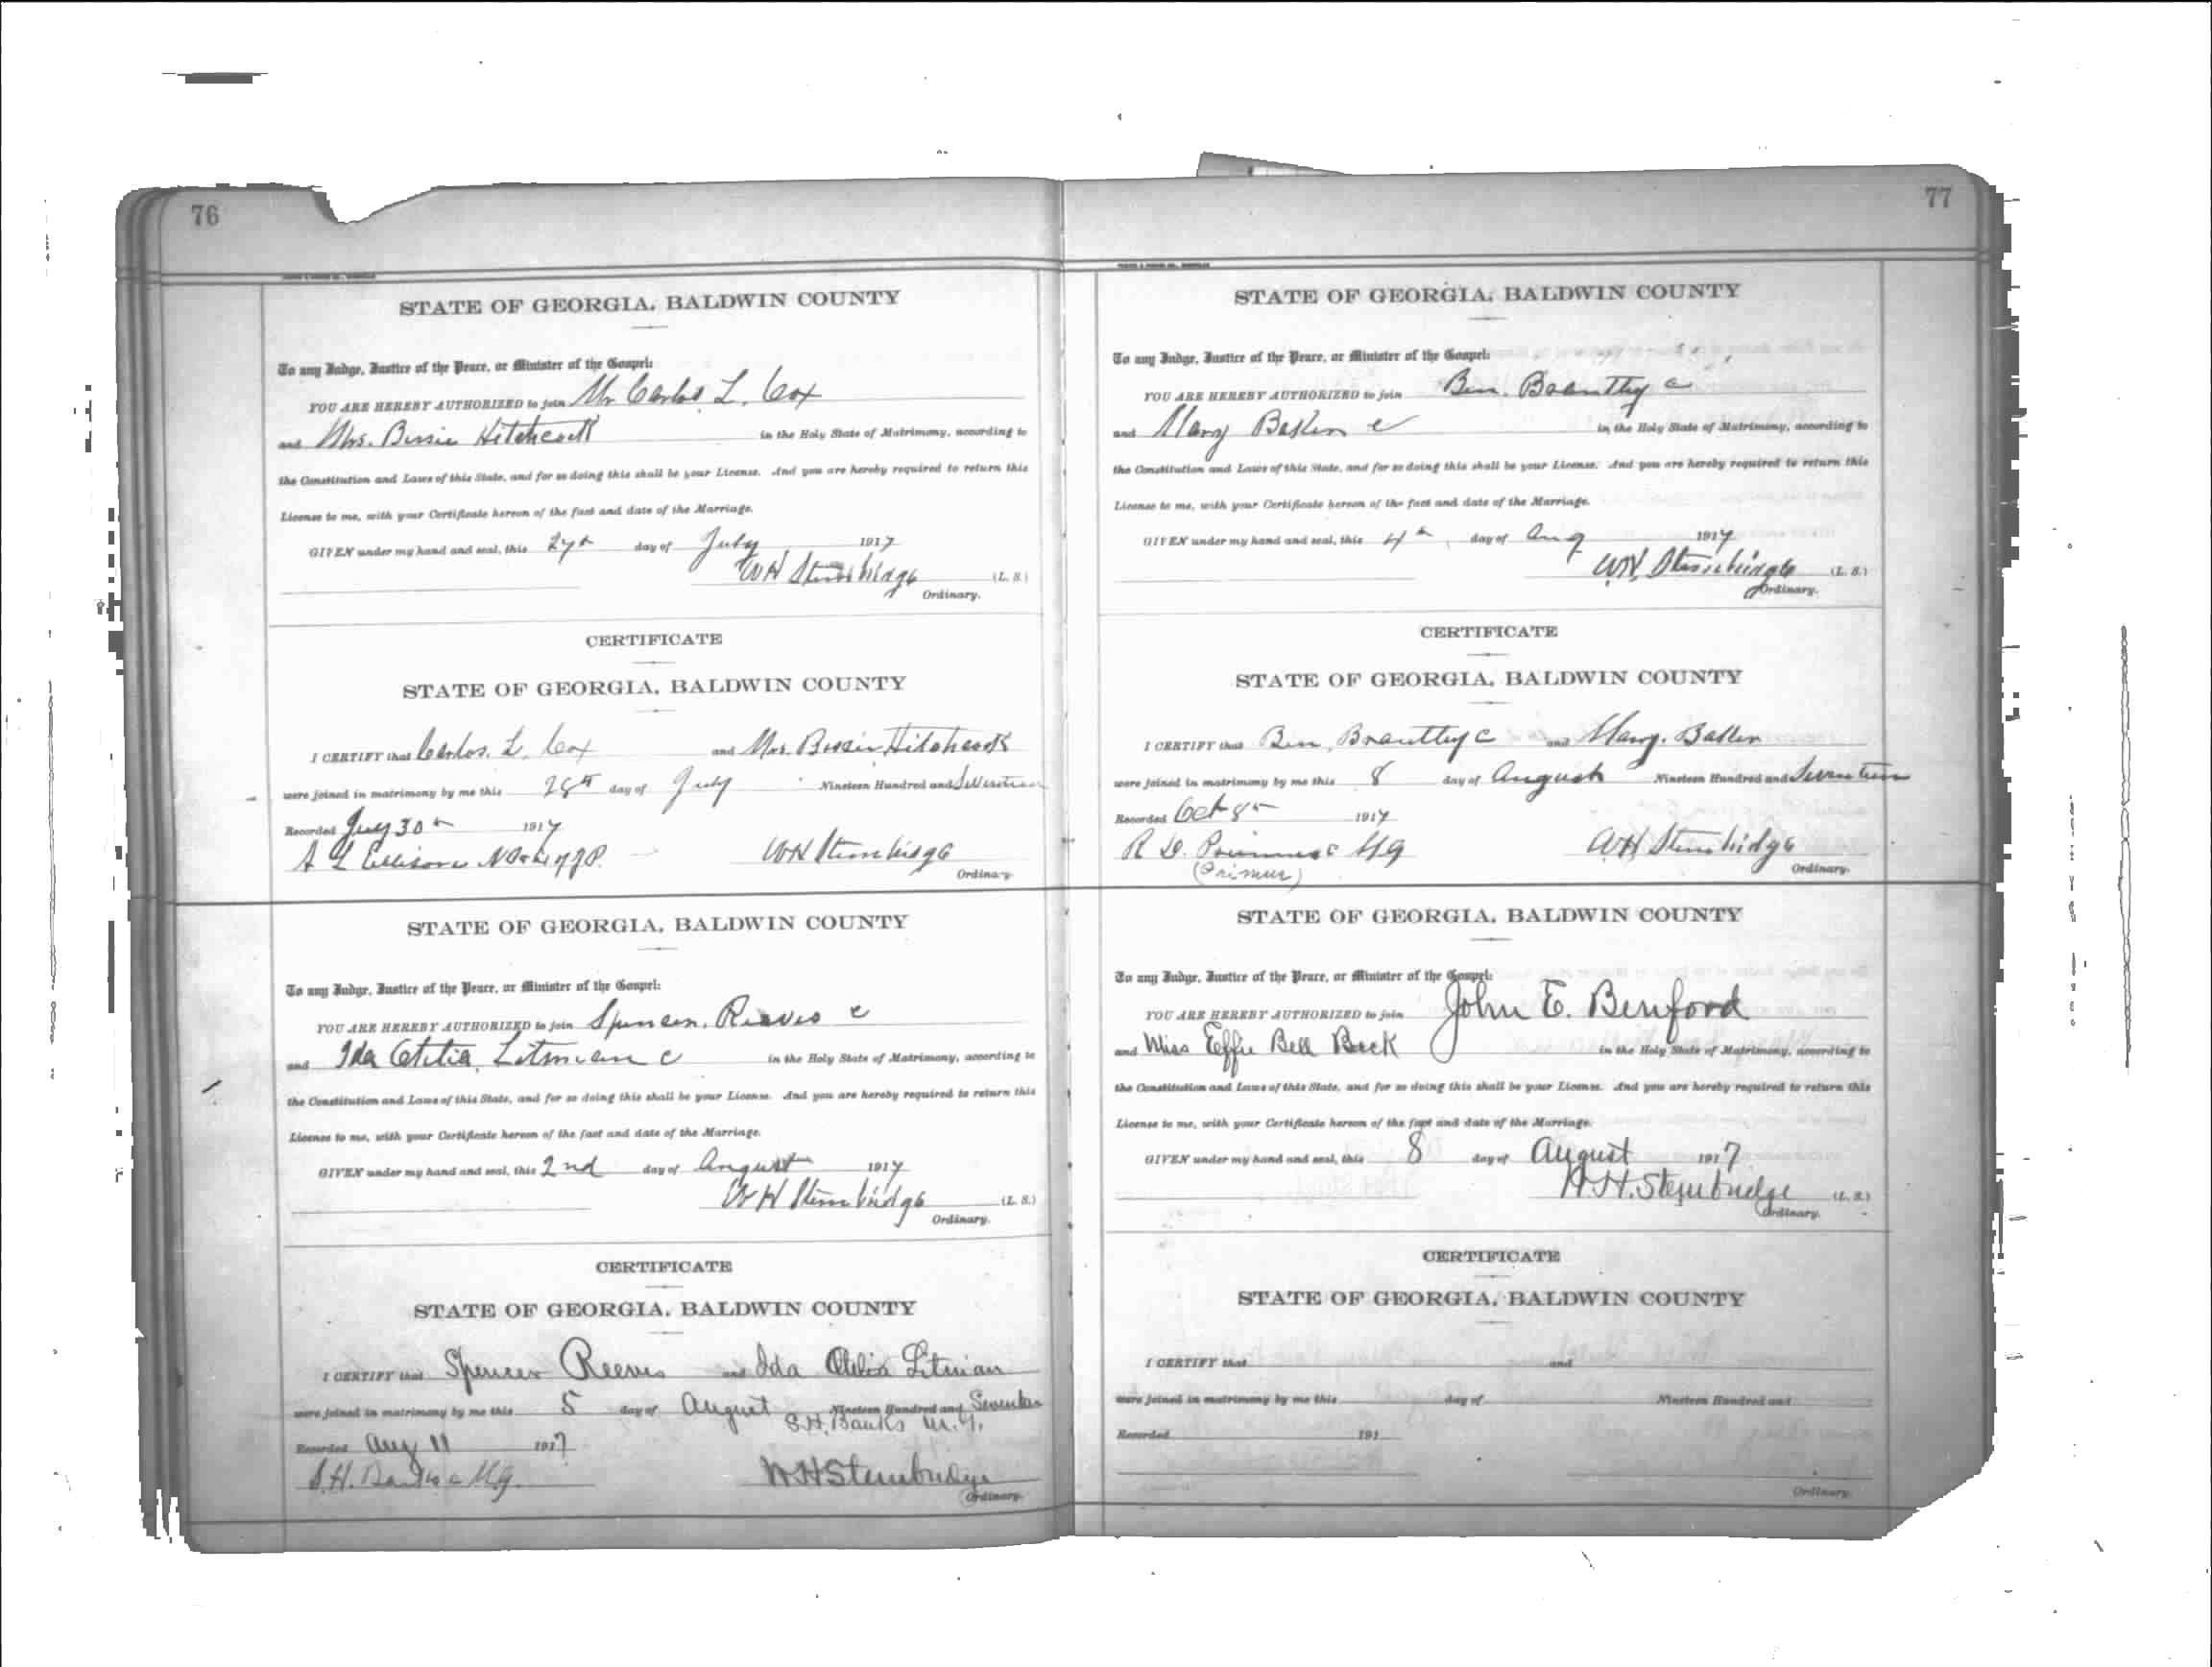 76
STATE OF GEORGIA, BALDWIN COUNTY
To any Judge, Justice of the Peace, or Minister of the Gospel:
YOU ARE HEREBY AUTHORIZED to join Mr Carlos L. Cox
and Mrs. Bessie Hitchcock in the Holy State of Matrimony, according to
the Constitution and Laws of this State, and for so doing this shall be your License. And you are hereby required to return this
License to me, with your Certificate hereon of the fact and date of the Marriage.
GIVEN under my hand and seal, this 27th day of July 1917
WH Stembridge (L. S.)
Ordinary.
CERTIFICATE
STATE OF GEORGIA, BALDWIN COUNTY
I CERTIFY that Carlos. L. Cox and Mrs. Bessie Hitchcock
were joined in matrimony by me this 28th day of July Nineteen Hundred and Seventeen
Recorded July 30th 1917
A L Ellison WH Stembridge
Ordinary.
STATE OF GEORGIA, BALDWIN COUNTY
To any Judge, Justice of the Peace, or Minister of the Gospel:
YOU ARE HEREBY AUTHORIZED to join Spencer, Reeves c
and Ida Otelia Litman c in the Holy State of Matrimony, according to
the Constitution and Laws of this State, and for so doing this shall be your License. And you are hereby required to return this
License to me, with your Certificate hereon of the fact and date of the Marriage.
GIVEN under my hand and seal, this 2nd day of August 1917
WH Stembridge (L. S.)
Ordinary.
CERTIFICATE
STATE OF GEORGIA, BALDWIN COUNTY
I CERTIFY that Spencer Reeves and Ida Otelia Litman
were joined in matrimony by me this 5 day of August Nineteen Hundred and Seventeen
S.H. Banks M.G.
Recorded Aug 11 1917
S.H. Banks c M.G. WH Stembridge
Ordinary.
77
STATE OF GEORGIA, BALDWIN COUNTY
To any Judge, Justice of the Peace, or Minister of the Gospel:
YOU ARE HEREBY AUTHORIZED to join Ben. Brantley c
and Mary Baker c in the Holy State of Matrimony, according to
the Constitution and Laws of this State, and for so doing this shall be your License. And you are hereby required to return this
License to me, with your Certificate hereon of the fact and date of the Marriage.
GIVEN under my hand and seal, this 4th day of Aug 1917
WH Stembridge (L. S.)
Ordinary.
CERTIFICATE
STATE OF GEORGIA, BALDWIN COUNTY
I CERTIFY that Ben, Brantley c and Mary. Baker
were joined in matrimony by me this 8 day of August Nineteen Hundred and Seventeen
Recorded Oct 8th 1917
R MG WH Stembridge
(Primus) Ordinary.
STATE OF GEORGIA, BALDWIN COUNTY
To any Judge, Justice of the Peace, or Minister of the Gospel:
YOU ARE HEREBY AUTHORIZED to join John E. Benford
and Miss Effie Bell Beck in the Holy State of Matrimony, according to
the Constitution and Laws of this State, and for so doing this shall be your License. And you are hereby required to return this
License to me, with your Certificate hereon of the fact and date of the Marriage.
GIVEN under my hand and seal, this 8 day of August 1917
W.H. Stembridge (L. S.)
Ordinary.
CERTIFICATE
STATE OF GEORGIA, BALDWIN COUNTY
I CERTIFY that and
were joined in matrimony by me this day of Nineteen Hundred and
Recorded 191
Ordinary.